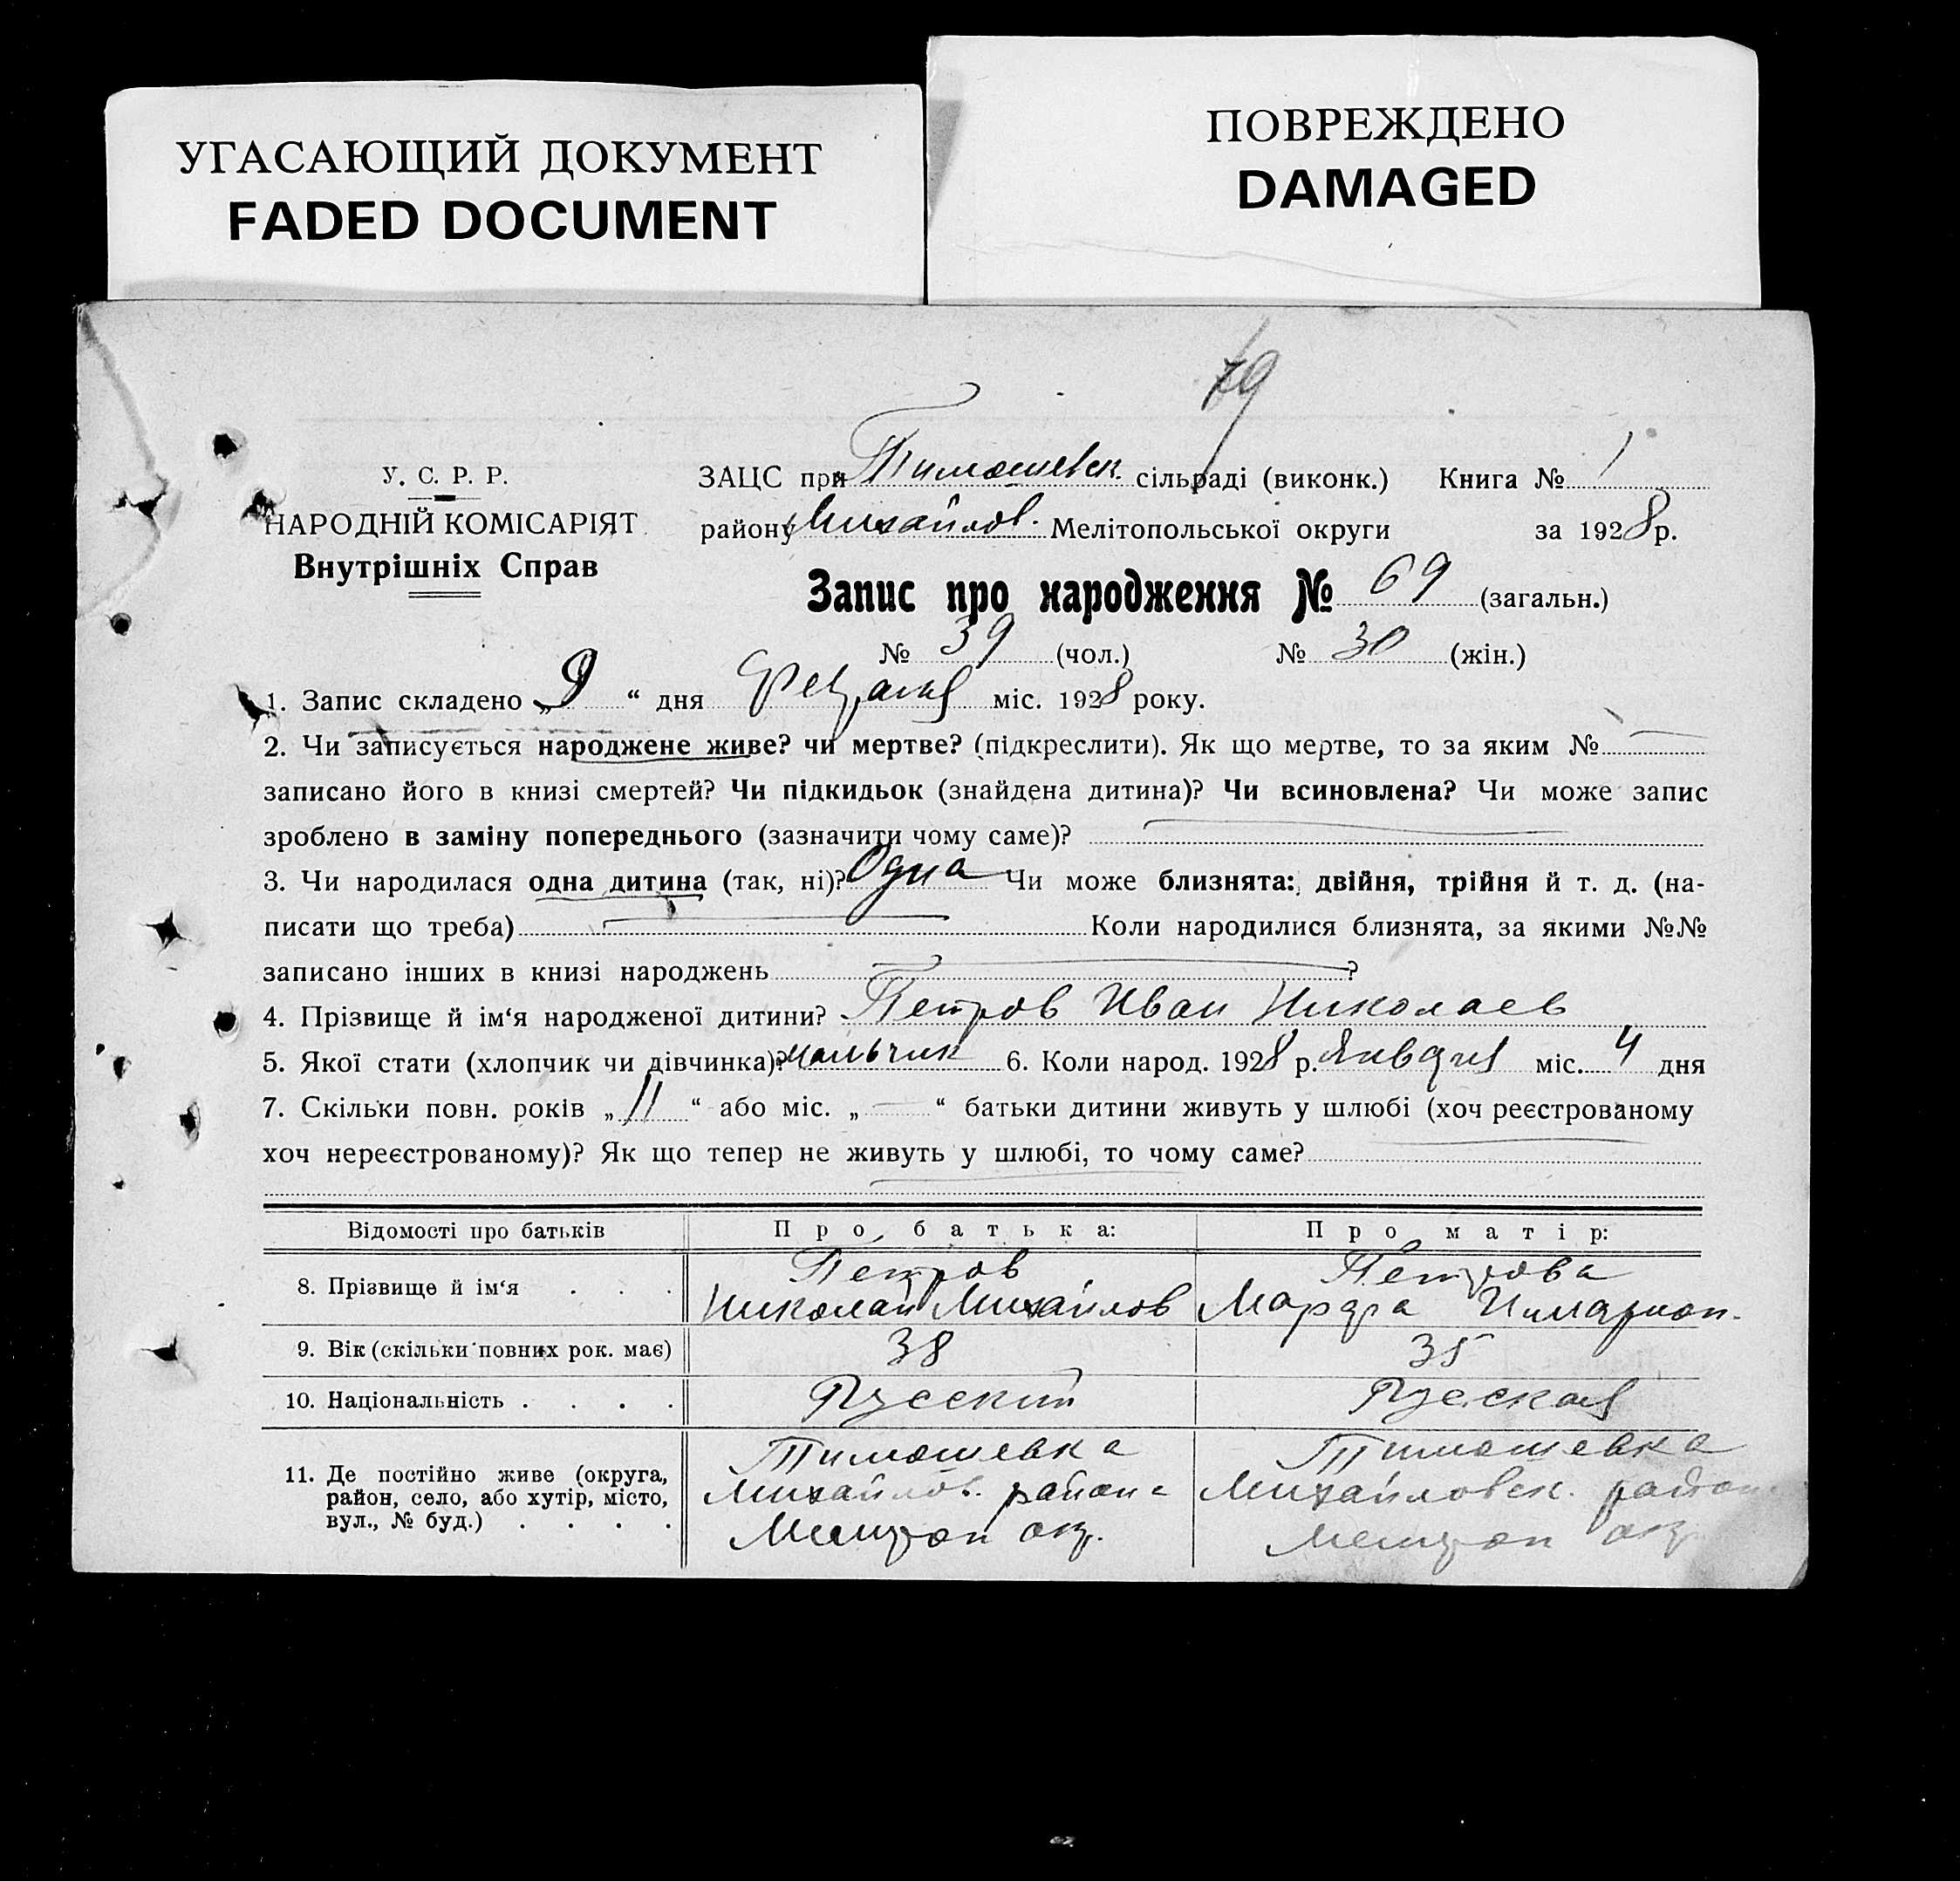 УГАСАЮЩИЙ ДОКУМЕНТ
FADED DOCUMENT
ПОВРЕЖДЕНО
DAMAGED
У. С. Р. Р.
НАРОДНІЙ КОМІСАРІЯТ
Внутрішніх Справ
ЗАЦС при Тимошевск. сільраді (виконк.) Книга № 1
району Михайлов. Мелітопольської округи за 1928 р.
Запис про народження № 69 (загальн.)
№ 39 (чол.) № 30 (жін.)
1. Запис складено „9“ дня Февраля міс. 1928 року.
2. Чи записується народжене живе? чи мертве? (підкреслити). Як що мертве, то за яким № —
записано його в книзі смертей? Чи підкидьок (знайдена дитина)? Чи всиновлена? Чи може запис
зроблено в заміну попереднього (зазначити чому саме)?
3. Чи народилася одна дитина (так, ні)? Одна Чи може близнята: двійня, трійня й т. д. (на-
писати що треба) Коли народилися близнята, за якими №№
записано інших в книзі народжень ?
4. Прізвище й ім‘я народженої дитини? Петров Иван Николаев
5. Якої стати (хлопчик чи дівчинка)? мальчик 6. Коли народ. 1928 р. Января міс. 4 дня
7. Скільки повн. років „11“ або міс. „—“ батьки дитини живуть у шлюбі (хоч реєстрованому
хоч нереєстрованому)? Як що тепер не живуть у шлюбі, то чому саме?
Відомості про батьків Про батька: Про матір:
8. Прізвище й ім‘я . . . Петров Николай Михайлов Петрова Марфа Иларион.
9. Вік (скільки повних рок. має) 38 35
10. Національність . . . . Русский Русская
11. Де постійно живе (округа, Тимошевка Тимошевка
район, село, або хутір, місто, Михайлов. района Михайловск. район
вул., № буд.) . . . . Мелитоп окр. Мелитоп окр